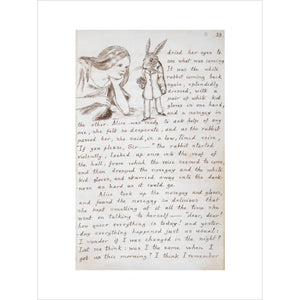 29
dried her eyes to
see what was coming.
It was the white
rabbit coming back
again, splendidly
dressed, with a
pair of white kid
gloves in one hand,
and a nosegay in
the other. Alice was ready to ask help of any
one, she felt so desperate, and as the rabbit
passed her, she said, in a low, timid voice,
"If you please, Sir—" the rabbit started
violently, looked up once into the roof of
the hall, from which the voice seemed to come,
and then dropped the nosegay and the white
kid gloves, and skurried away into the darkness
as hard as it could go.
Alice took up the nosegay and gloves,
and found the nosegay so delicious that
she kept smelling at it all the time she
went on talking to herself— "dear, dear!
how queer everything is today! and yester-
day everything happened just as usual:
I wonder if I was changed in the night?
Let me think: was I the same when I
got up this morning? I think I remember